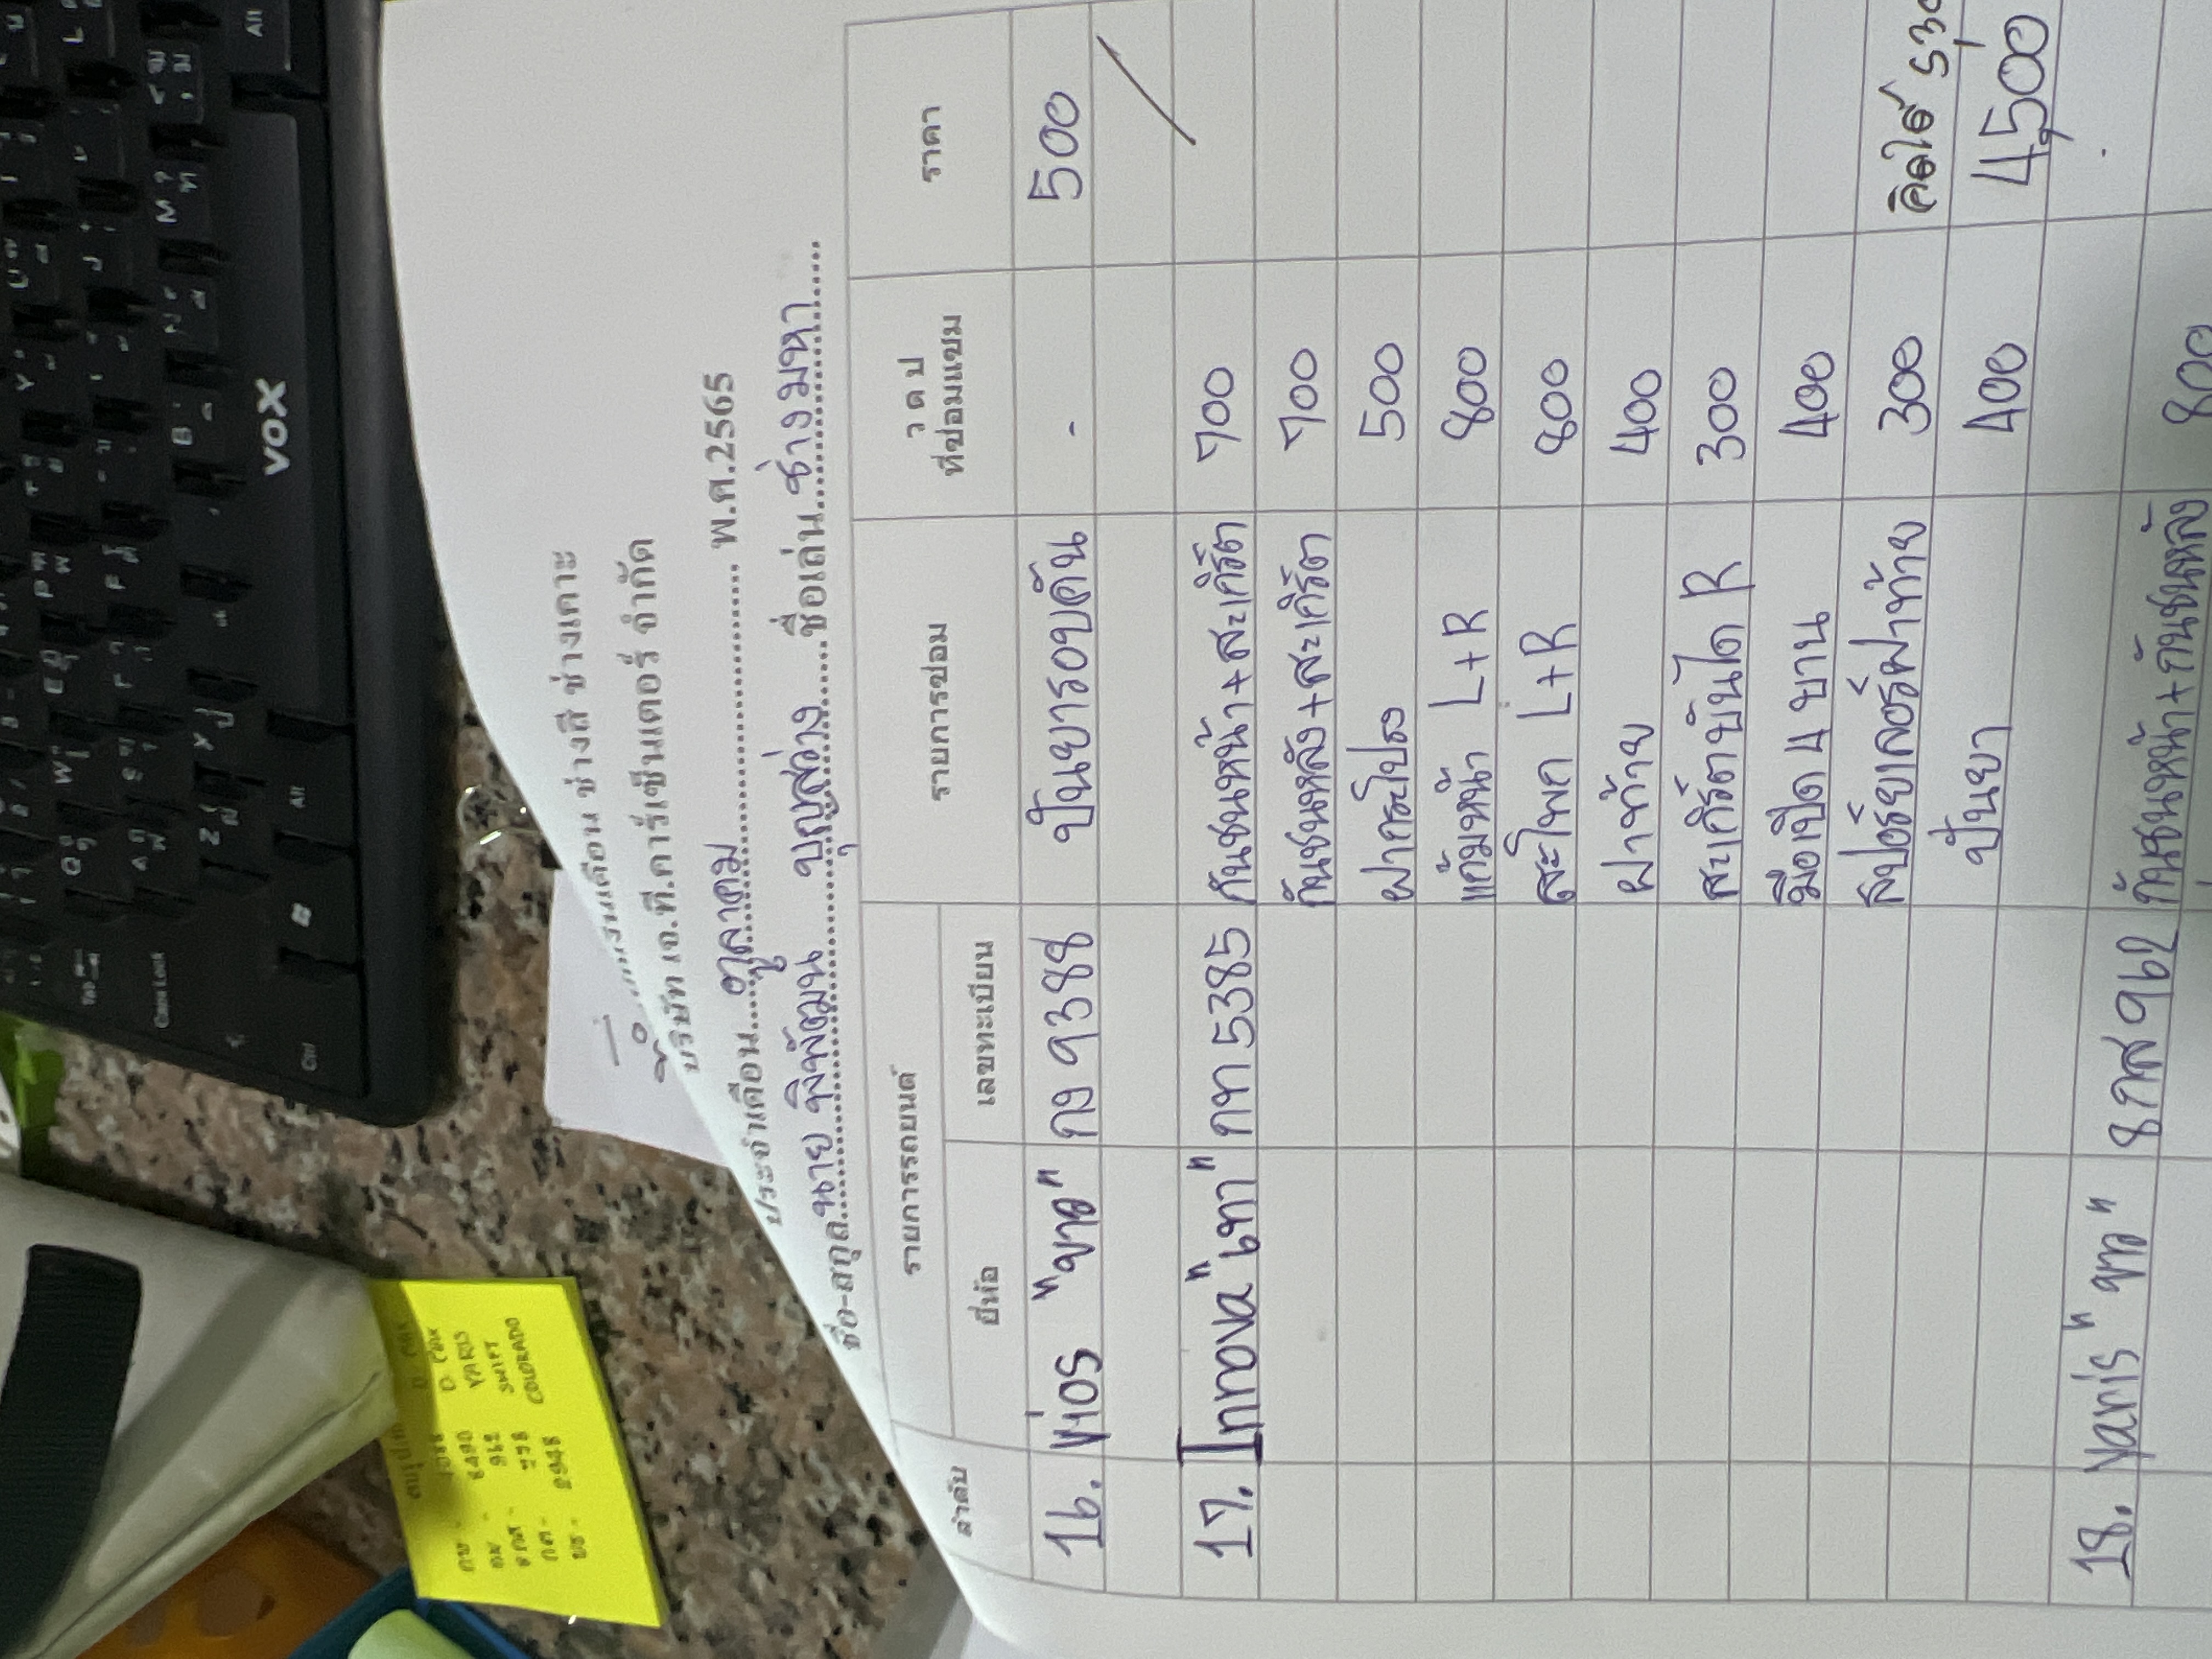 ช่างสี ช่างเคาะ
บริษัท เจ.ที.คาร์เซ็นเตอร์ จำกัด
ประจำเดือน ตุลาคม พ.ศ.2565
ชื่อ-สกุล นาย พิพัฒมน บุญสว่าง ชื่อเล่น ช่างมหา
ลำดับ รายการรถยนต์ รายการซ่อม ว ด ป ที่ซ่อมแซม ราคา
ยี่ห้อ เลขทะเบียน
16. Vios "ขาว" กง 9388 ปั่นยารอบคัน - 500
17. Innova "เทา" กท 5385 กันชนหน้า+สะเกิร์ต 700
กันชนหลัง+สะเกิร์ต 700
ฝากระโปรง 500
แก้มหน้า L+R 800
สะโพก L+R 800
ฝาท้าย 400
สะเกิร์ตบันได R 300
มือเปิด 4 บาน 400
สปอร์ยเลอร์ฝาท้าย 300 คิดให้
ปั่นยา 400 4,500
18. Yaris "ขาว" 8กส 962 กันชนหน้า+กันชนหลัง 800
VOX
D MAX
YARIS
SWIFT
COLORADO
8490
962
2948